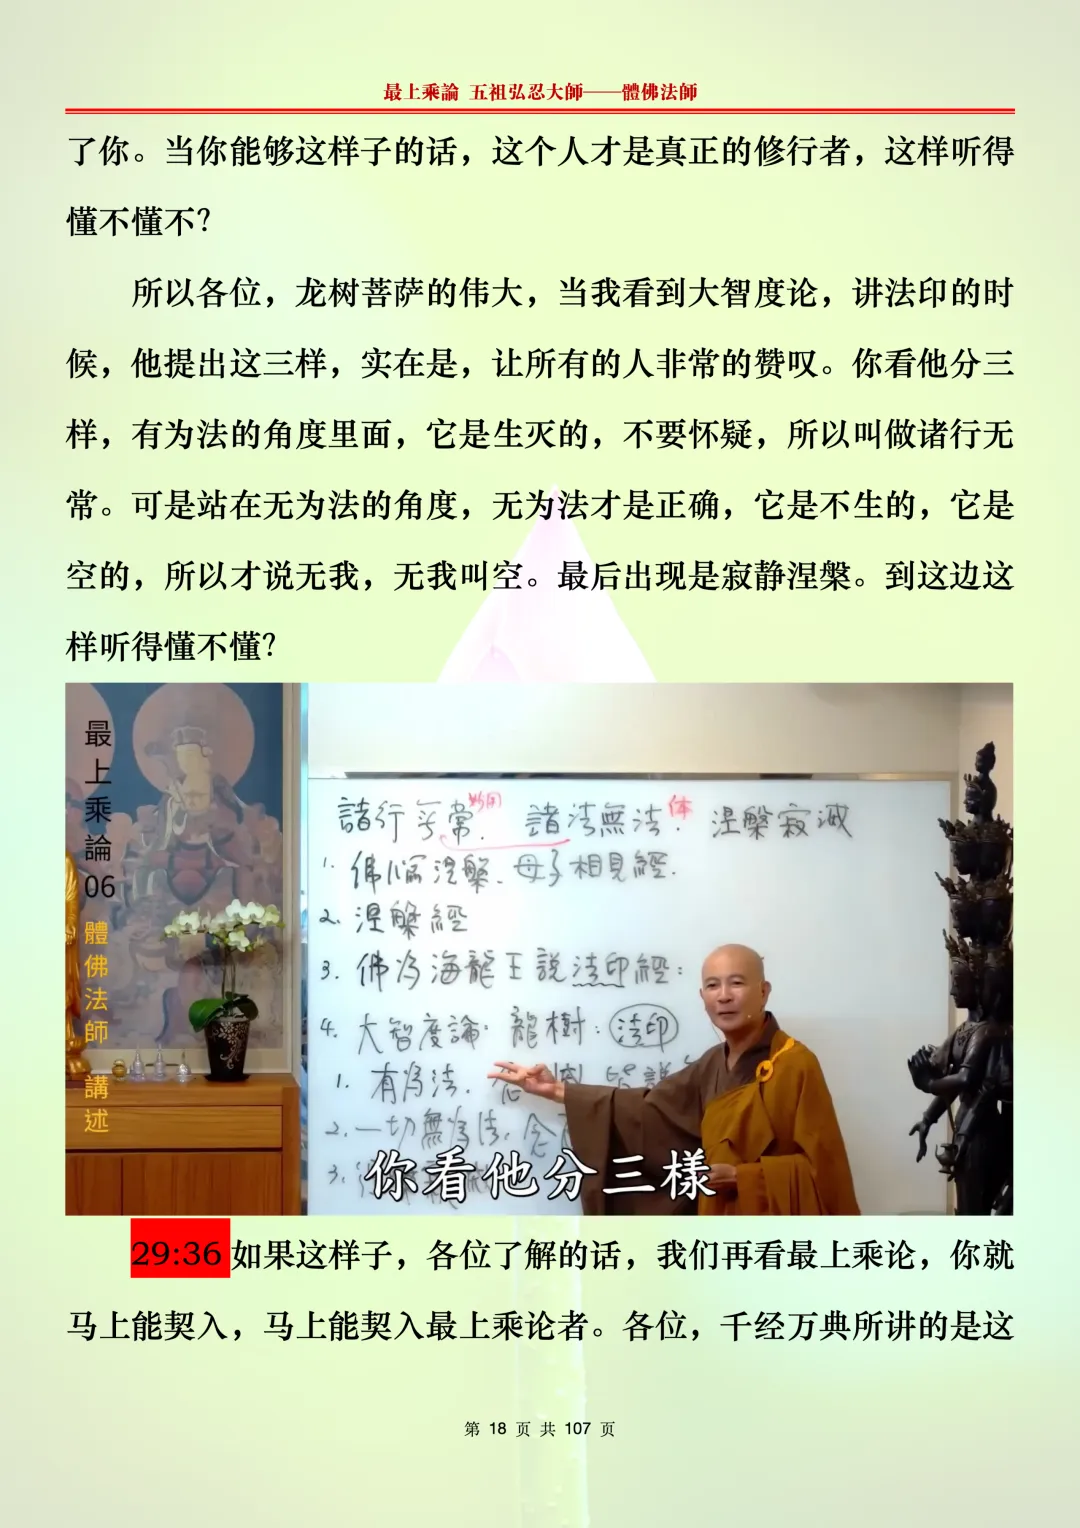 最上乘論 五祖弘忍大師——體佛法師
了你。当你能够这样子的话，这个人才是真正的修行者，这样听得
懂不懂不？
所以各位，龙树菩萨的伟大，当我看到大智度论，讲法印的时
候，他提出这三样，实在是，让所有的人非常的赞叹。你看他分三
样，有为法的角度里面，它是生灭的，不要怀疑，所以叫做诸行无
常。可是站在无为法的角度，无为法才是正确，它是不生的，它是
空的，所以才说无我，无我叫空。最后出现是寂静涅槃。到这边这
样听得懂不懂？
最上乘論06 體佛法師 講述
諸行無常 妙用 諸法無法 体 涅槃寂滅
1. 佛臨涅槃 母子相見經.
2. 涅槃經
3. 佛为海龍王說法印經：
4. 大智度論：龍樹：法印
1. 有为法.
2. 一切無为法 念
3.
你看他分三樣
29:36 如果这样子，各位了解的话，我们再看最上乘论，你就
马上能契入，马上能契入最上乘论者。各位，千经万典所讲的是这
第 18 页 共 107 页